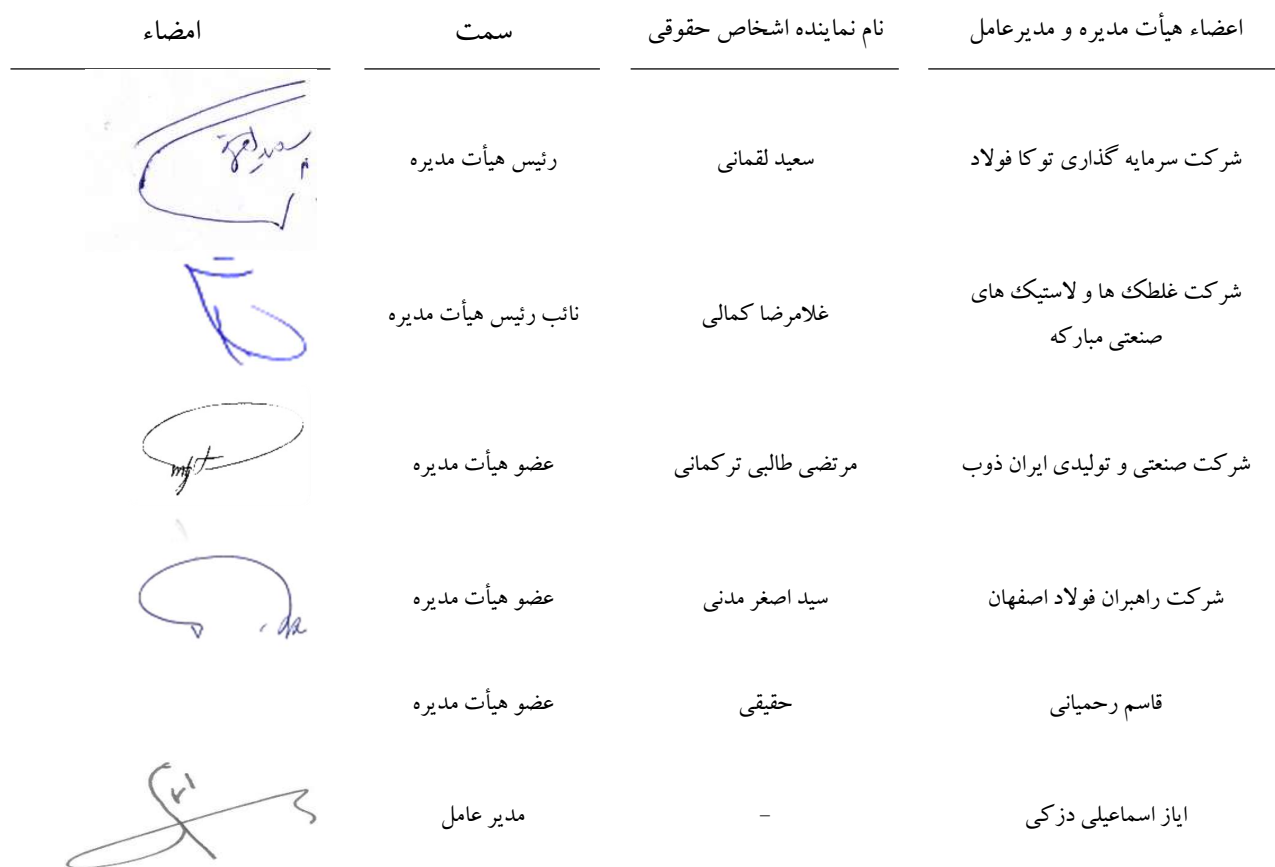 اعضاء هیأت مدیره و مدیرعامل نام نماینده اشخاص حقوقی سمت امضاء
شرکت سرمایه گذاری توکا فولاد سعید لقمانی رئیس هیأت مدیره
شرکت غلطک ها و لاستیک های
صنعتی مبارکه غلامرضا کمالی نائب رئیس هیأت مدیره
شرکت صنعتی و تولیدی ایران ذوب مرتضی طالبی ترکمانی عضو هیأت مدیره
شرکت راهبران فولاد اصفهان سید اصغر مدنی عضو هیأت مدیره
قاسم رحمیانی حقیقی عضو هیأت مدیره
ایاز اسماعیلی دزکی – مدیر عامل